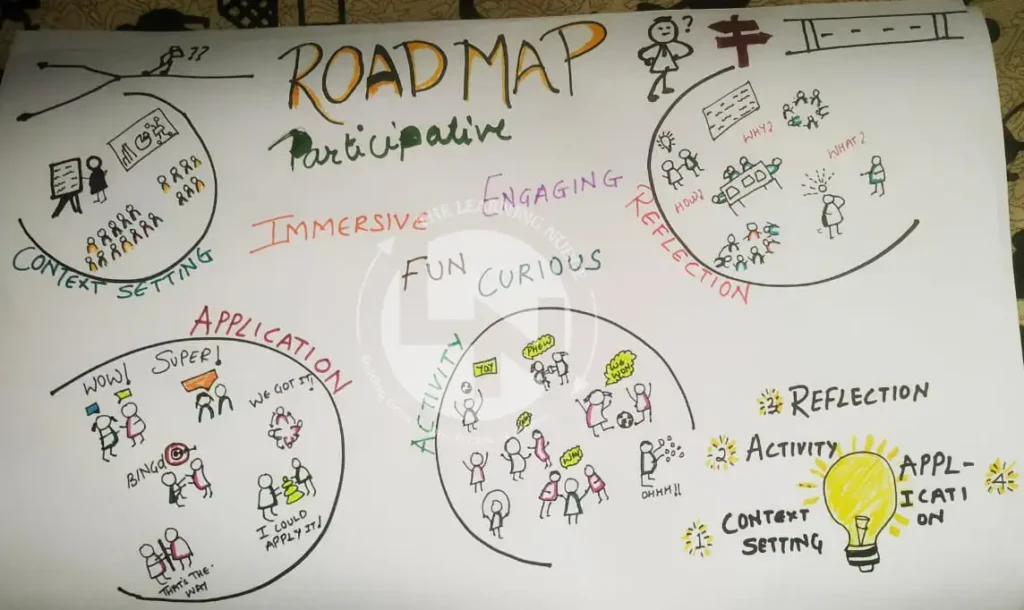 ??
ROADMAP
?
Participative
ENGAGING
IMMERSIVE
FUN
CURIOUS
CONTEXT SETTING
WHY?
WHAT?
HOW?
REFLECTION
APPLICATION
WOW!
SUPER!
WE GOT IT!
BINGO
I COULD
APPLY IT!
THAT'S THE
WAY
ACTIVITY
YAY
PHEW
WE
WON
OHHH!!
3 REFLECTION
2 ACTIVITY
1 CONTEXT
SETTING
APPL-
ICATI
ON
4
THE LEARNING NURTURE
LN